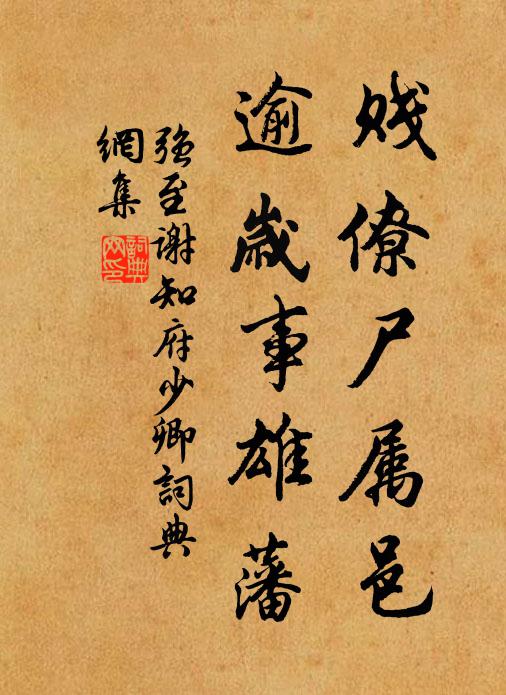 贱僚尸属邑
逾歲事雄藩
强至谢知府少卿詞典
網集
詞典網印